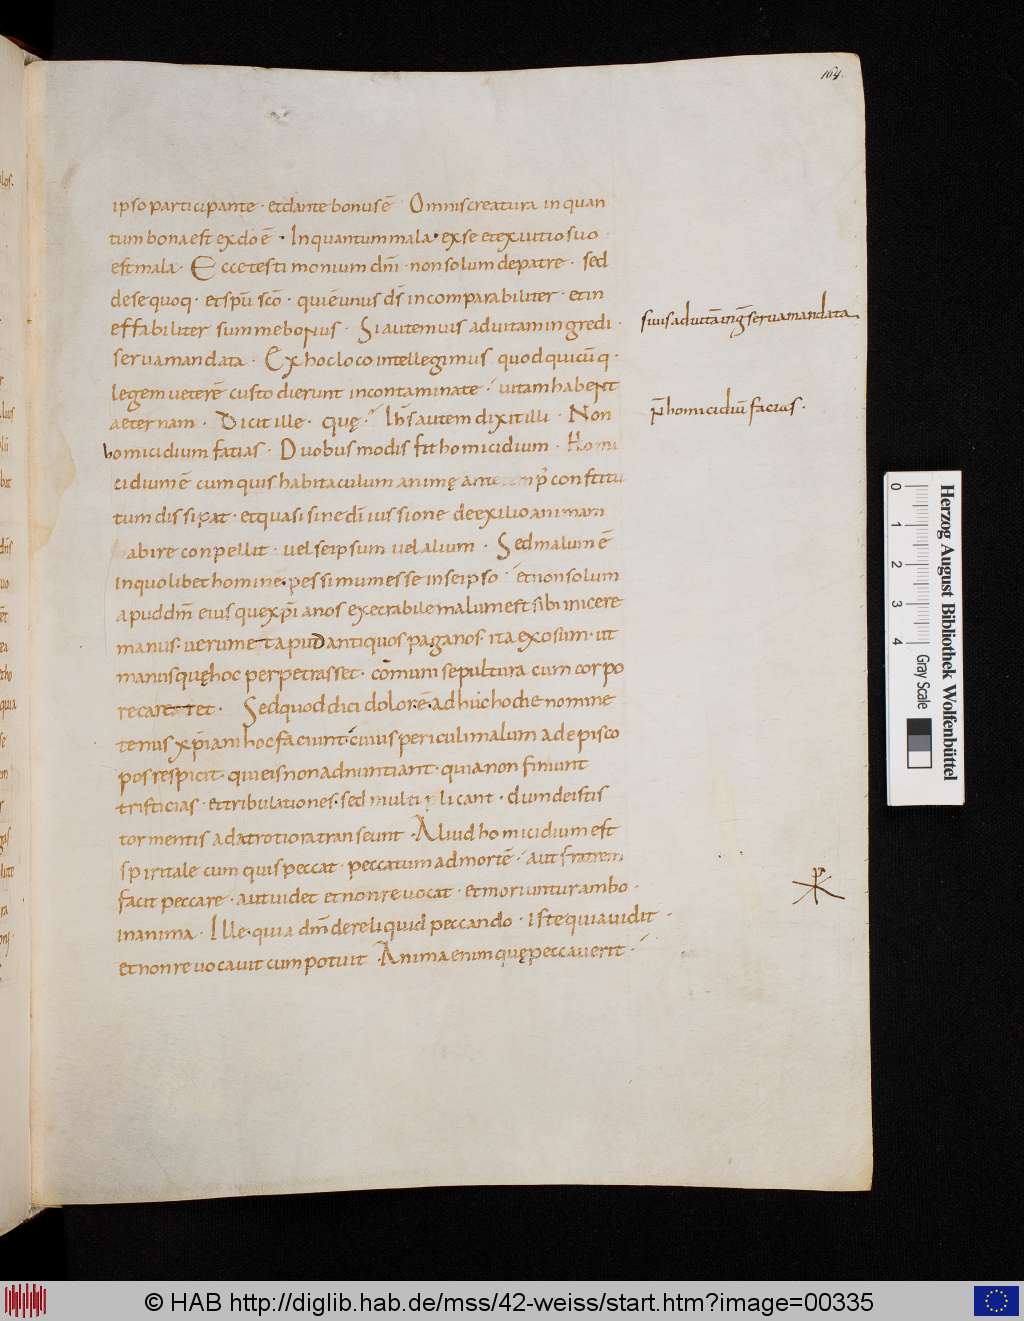 164.
ipso participante · et dante bonus ē Omnis creatura in quan
tum bona est ex dō ē · In quantum mala · ex se et ex uitio suo ·
est mala · Ecce testimonium dm̄i · non solum de patre · sed
de se quoq · et spū scō · qui ē unus ds̄ incomparabiliter · et in
effabiliter summe bonus · Si autem uis ad uitam ingredi ·
serua mandata · Ex hoc loco intellegimus quod quicūq ·
legem ueterē custodierunt incontaminate · uitam habent
aeternam · Dicit ille · quę ? Ihs̄ autem dixit illi · Non
homicidium fatias · Duobus modis fit homicidium · Homi
cidium ē cum quis habitaculum animę a xp̄o constitu
tum dissipat · et quasi sine dī iussione de exilio animam
abire conpellit · uel se ipsum uel alium · Sed malum ē
in quolibet homine · pessimum esse in se ipso · et non solum
apud dm̄ eiusque xp̄ianos execrabile malum est sibi inicere
manus · uerum et apud antiquos paganos · ita exosum · ut
manus quę hoc perpetrasset · cōmuni sepultura cum corpo
re careret · Sed quod dici dolor ē · adhuc hodie nomine
tenus xp̄iani hoc faciunt · cuius periculi malum ad episco
pos respicit · qui eis non adnuntiant · quia non finiunt
tristicias · et tribulationes · sed multiplicant · dum de istis
tormentis ad atrotiora transeunt · Aliud homicidium est
spiritale cum quis peccat · peccatum ad mortē · aut fratrem
facit peccare · aut uidet et non reuocat · et moriuntur ambo ·
in anima · Ille · quia dm̄ dereliquid peccando · Iste quia uidit ·
et non reuocauit cum potuit · Anima enim quę peccauerit ·
si uis ad uitā inḡ serua mandata
homicidiū facias ·
© HAB http://diglib.hab.de/mss/42-weiss/start.htm?image=00335
Herzog August Bibliothek Wolfenbüttel
0 1 2 3 4 Gray Scale